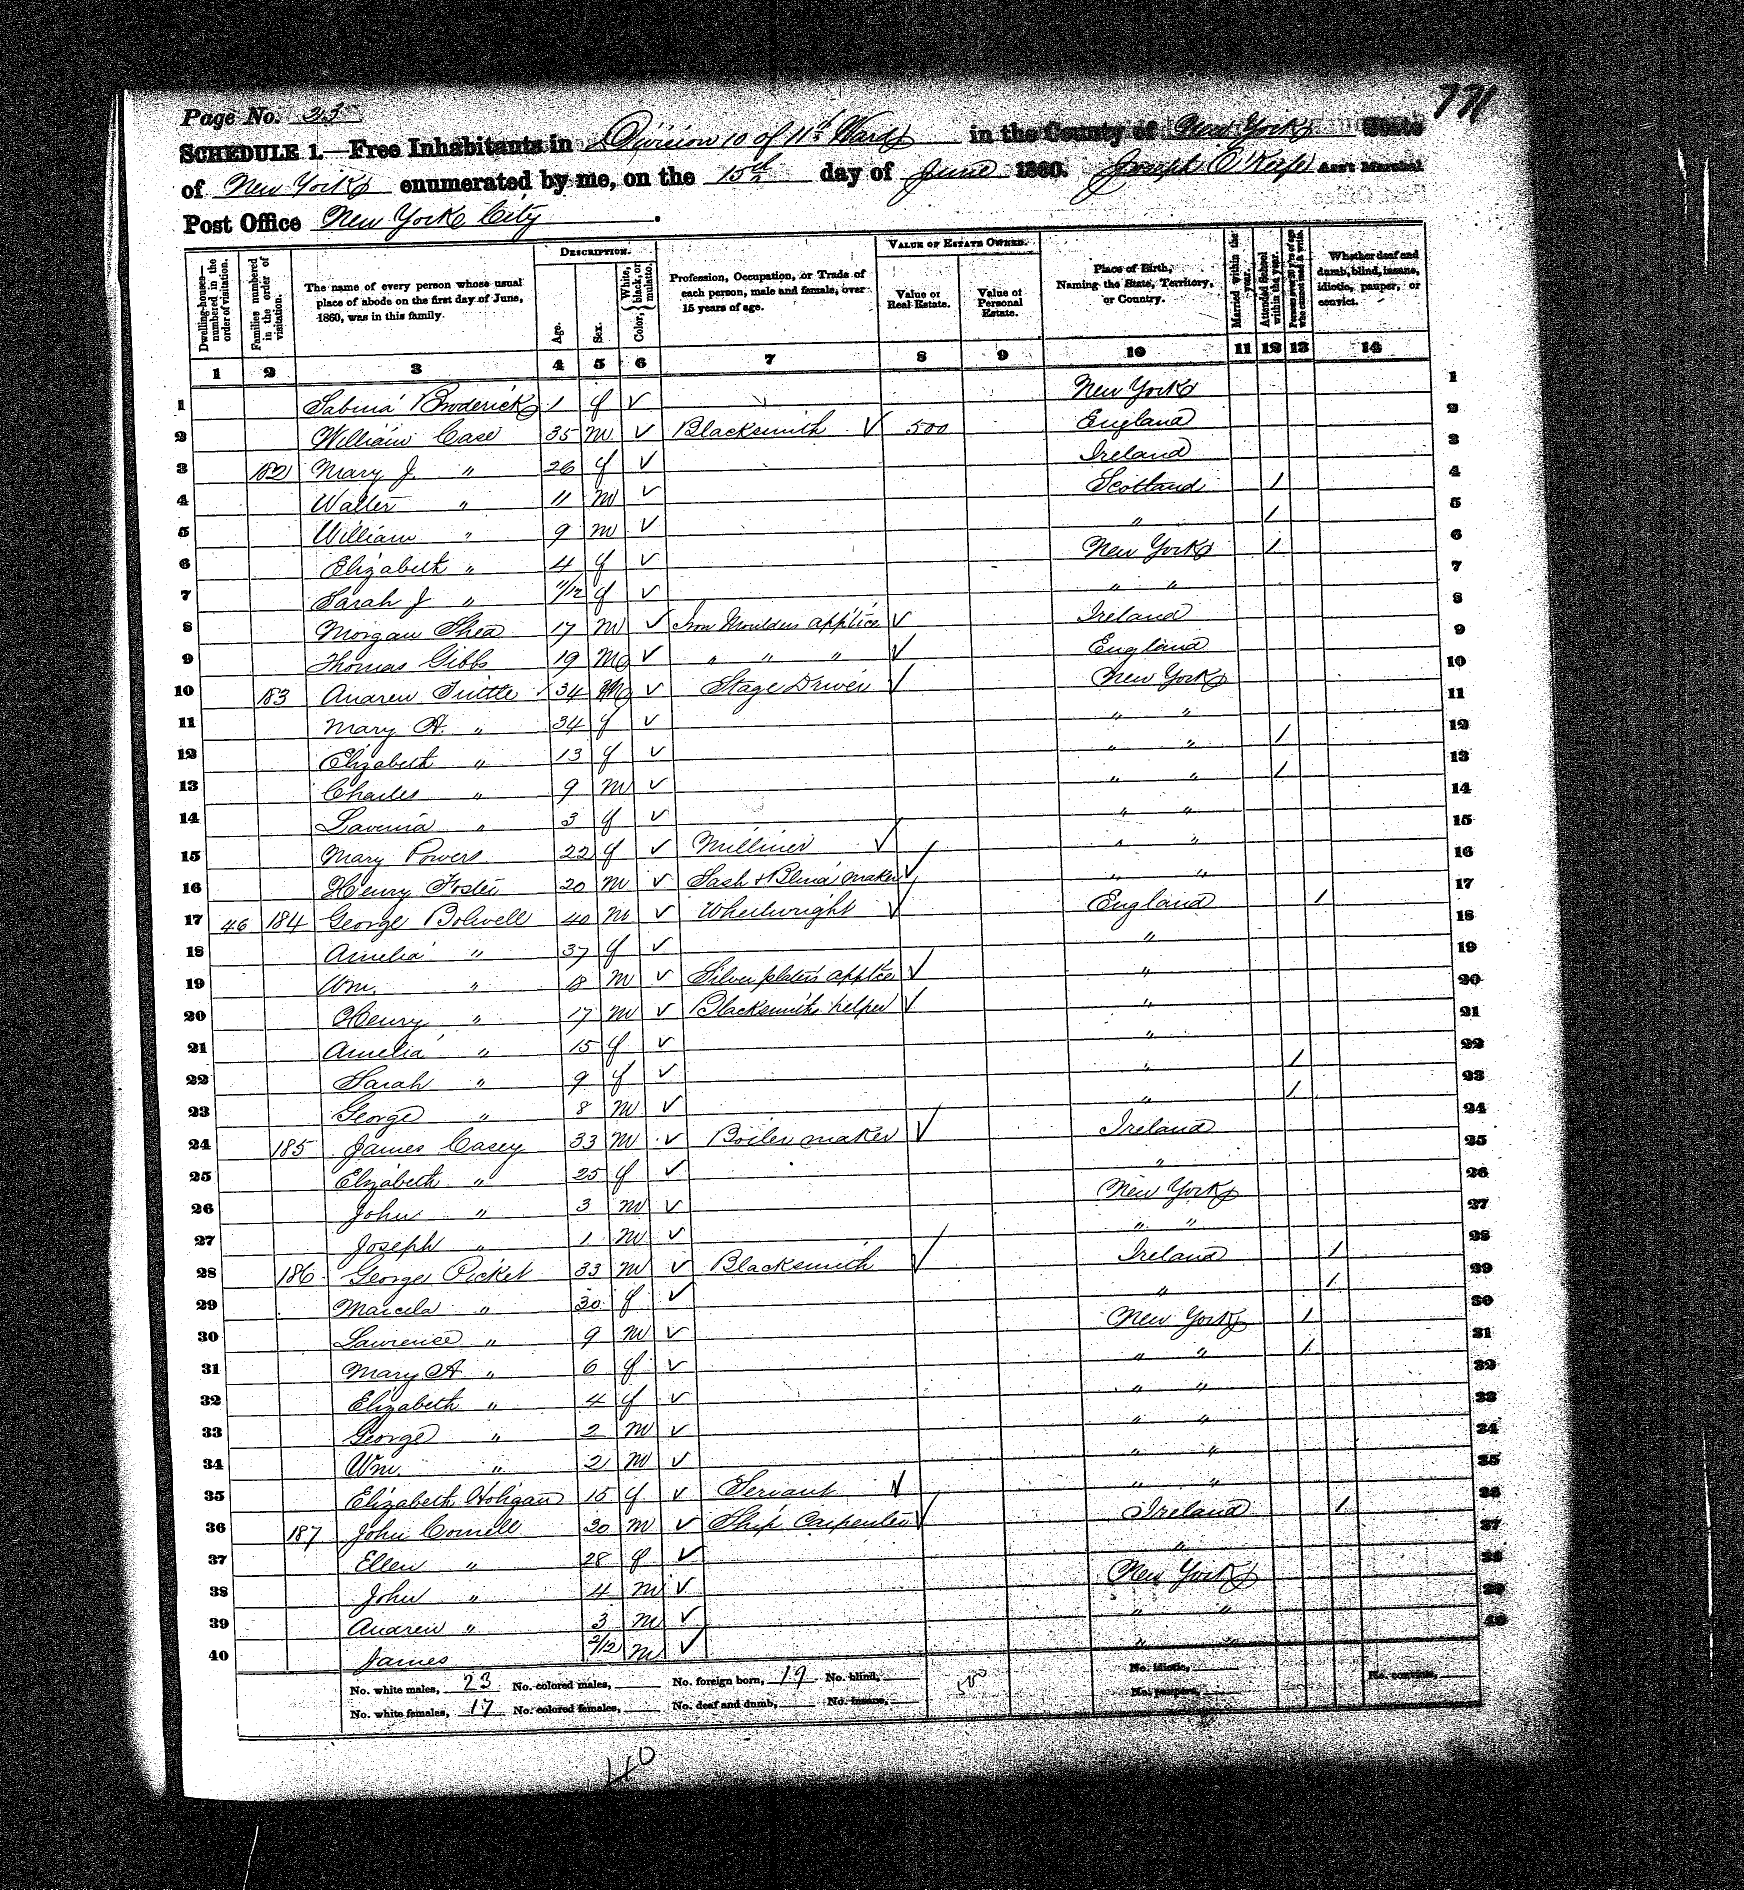 771
Page No. 25
SCHEDULE 1.—Free Inhabitants in Division 10 of 11th Ward in the County of New York State
of New York enumerated by me, on the 15th day of June 1860. Joseph O'Keefe Ass't Marshal
Post Office New York City.
Dwelling-houses—numbered in the order of visitation. Families numbered in the order of visitation. The name of every person whose usual place of abode on the first day of June, 1860, was in this family. DESCRIPTION. Age. Sex. Color, White, black, or mulatto. Profession, Occupation, or Trade of each person, male and female, over 15 years of age. VALUE OF ESTATE OWNED. Value of Real Estate. Value of Personal Estate. Place of Birth, Naming the State, Territory, or Country. Married within the year. Attended School within the year. Persons over 20 y'rs of age who cannot read & write. Whether deaf and dumb, blind, insane, idiotic, pauper, or convict.
1 2 3 4 5 6 7 8 9 10 11 12 13 14
1 Sabina Broderick 1 f ✓ New York 1
2 William Case 35 m ✓ Blacksmith ✓ 500 England 2
3 182 Mary J. " 26 f ✓ Ireland 3
4 Walter " 11 m ✓ Scotland 1 4
5 William " 9 m ✓ " 1 5
6 Elizabeth " 4 f ✓ New York 1 6
7 Sarah J " 11/12 f ✓ " " 7
8 Morgan Shea 17 m ✓ Iron Moulders apptice ✓ Ireland 8
9 Thomas Gibbs 19 m ✓ " " " ✓ England 9
10 183 Andrew Tuttle 34 m ✓ Stage Driver ✓ New York 10
11 Mary A. " 34 f ✓ " " 11
12 Elizabeth " 13 f ✓ " " 1 12
13 Charles " 9 m ✓ " " 1 13
14 Lavenia " 3 f ✓ " " 14
15 Mary Powers 22 f ✓ Milliner ✓ " " 15
16 Henry Foster 20 m ✓ Sash & Blind maker ✓ " " 16
17 46 184 George Bolwell 40 m ✓ Wheelwright ✓ England 1 17
18 Amelia " 37 f ✓ " 18
19 Wm. " 18 m ✓ Silver platers apptice ✓ " 19
20 Henry " 17 m ✓ Blacksmiths helper ✓ " 20
21 Amelia " 15 f ✓ " 21
22 Sarah " 9 f ✓ " 1 22
23 George " 8 m ✓ " 1 23
24 185 James Casey 33 m ✓ Boiler maker ✓ Ireland 24
25 Elizabeth " 25 f ✓ " 25
26 John " 3 m ✓ New York 26
27 Joseph " 1 m ✓ " " 27
28 186 George Picket 33 m ✓ Blacksmith ✓ Ireland 1 28
29 Marcela " 30 f ✓ " 1 29
30 Lawrence " 9 m ✓ New York 1 30
31 Mary A. " 6 f ✓ " " 1 31
32 Elizabeth " 4 f ✓ " " 32
33 George " 2 m ✓ " " 33
34 Wm. " 2 m ✓ " " 34
35 Elizabeth Holigan 15 f ✓ Servant ✓ " " 35
36 187 John Cornell 30 m ✓ Ship Carpenter ✓ Ireland 1 36
37 Ellen " 28 f ✓ " 37
38 John " 4 m ✓ New York 38
39 Andrew " 3 m ✓ " " 39
40 James 2/12 m ✓ " " 40
No. white males, 23 No. colored males, No. foreign born, 19 No. blind, No. idiotic, No. convicts,
No. white females, 17 No. colored females, No. deaf and dumb, No. insane, No. paupers,
40